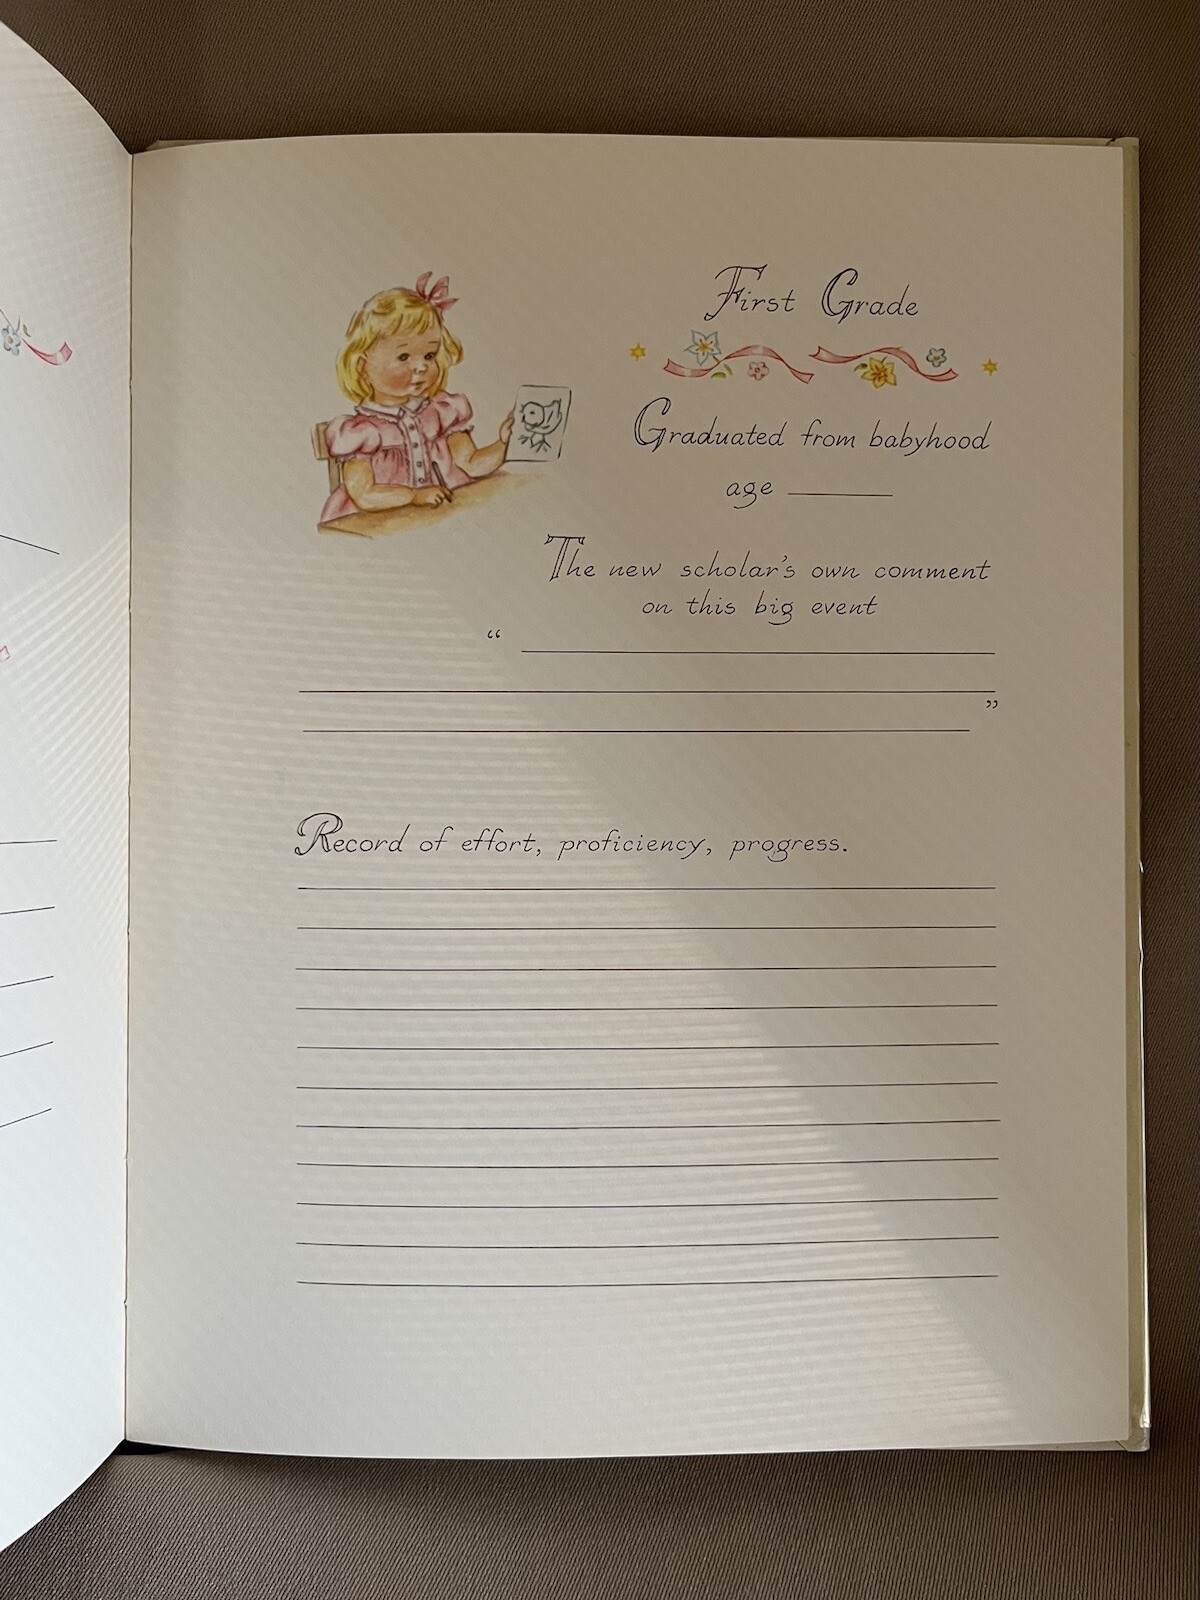 First Grade
Graduated from babyhood
age
The new scholar's own comment
on this big event
“
”
Record of effort, proficiency, progress.